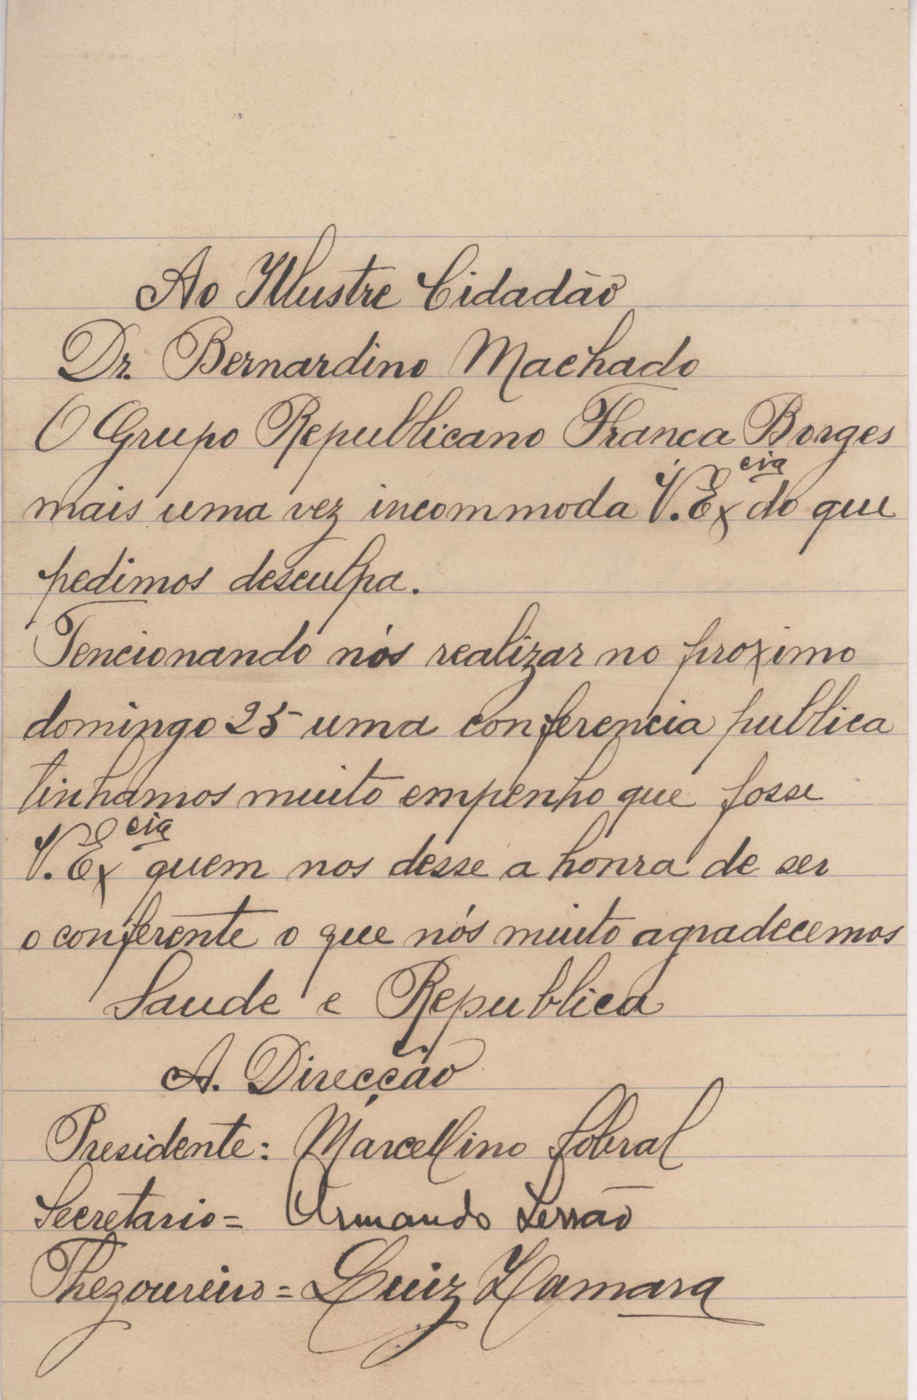 Ao Illustre Cidadão
Dr. Bernardino Machado
O Grupo Republicano Franca Borges
mais uma vez incommoda V. Ex.cia do que
pedimos desculpa.
Tencionando nós realizar no proximo
domingo 25 uma conferencia publica
tinhamos muito empenho que fosse
V. Excia quem nos desse a honra de ser
o conferente o que nós muito agradecemos
Saude e Republica
A. Direcção
Presidente: Marcellino Sobral
Secretario = Armando
Thezoureiro = Luiz